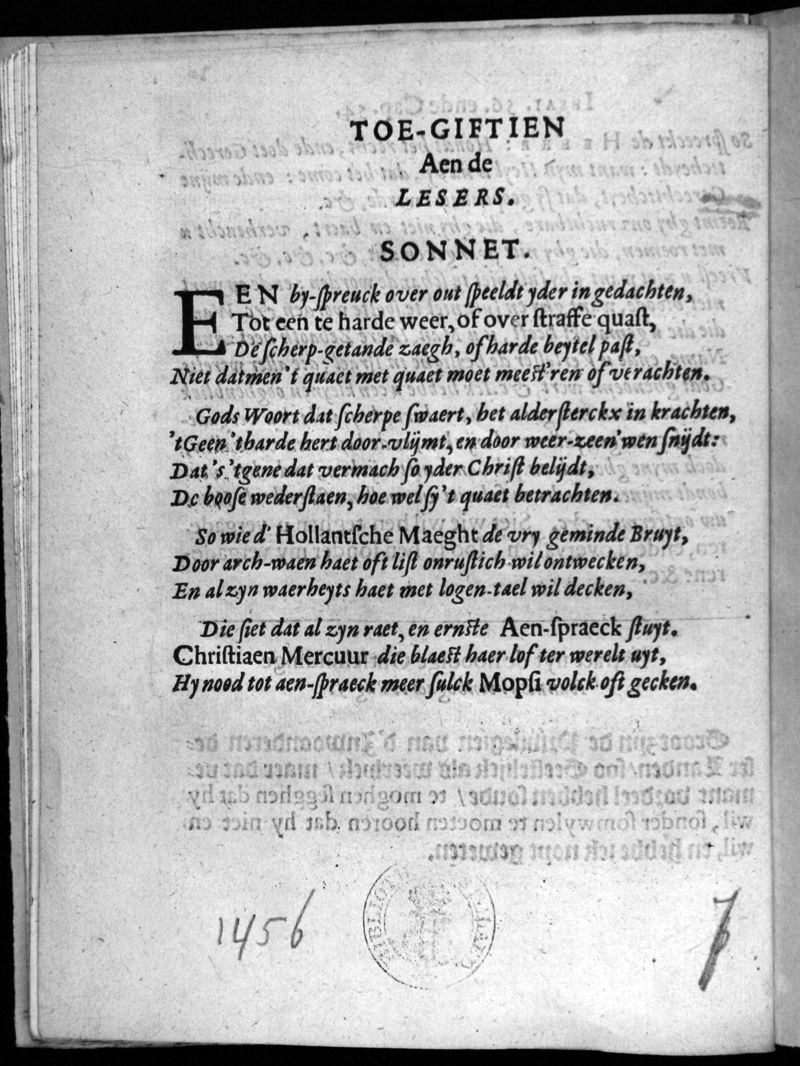 TOE-GIFTIEN
Aen de
LESERS.
SONNET.
EEN by-ſpreuck over out ſpeeldt yder in gedachten,
Tot een te harde weer, of over ſtraffe quaſt,
De ſcherp-getande zaegh, of harde beytel paſt,
Niet datmen 't quaet met quaet moet meeſt'ren of verachten.
Gods Woort dat ſcherpe ſwaert, het alderſterckx in krachten,
'tGeen 'tharde hert door-vlijmt, en door weer-zeen'wen ſnijdt:
Dat 's 'tgene dat vermach ſo yder Chriſt belijdt,
De booſe wederſtaen, hoe wel ſy 't quaet betrachten.
So wie d' Hollantſche Maeght de vry geminde Bruyt,
Door arch-waen haet oft liſt onruſtich wil ontwecken,
En al zyn waerheyts haet met logen-tael wil decken,
Die ſiet dat al zyn raet, en ernſte Aen-ſpraeck ſtuyt.
Chriſtiaen Mercuur die blaeſt haer lof ter werelt uyt,
Hy nood tot aen-ſpraeck meer ſulck Mopſi volck oft gecken.
1456